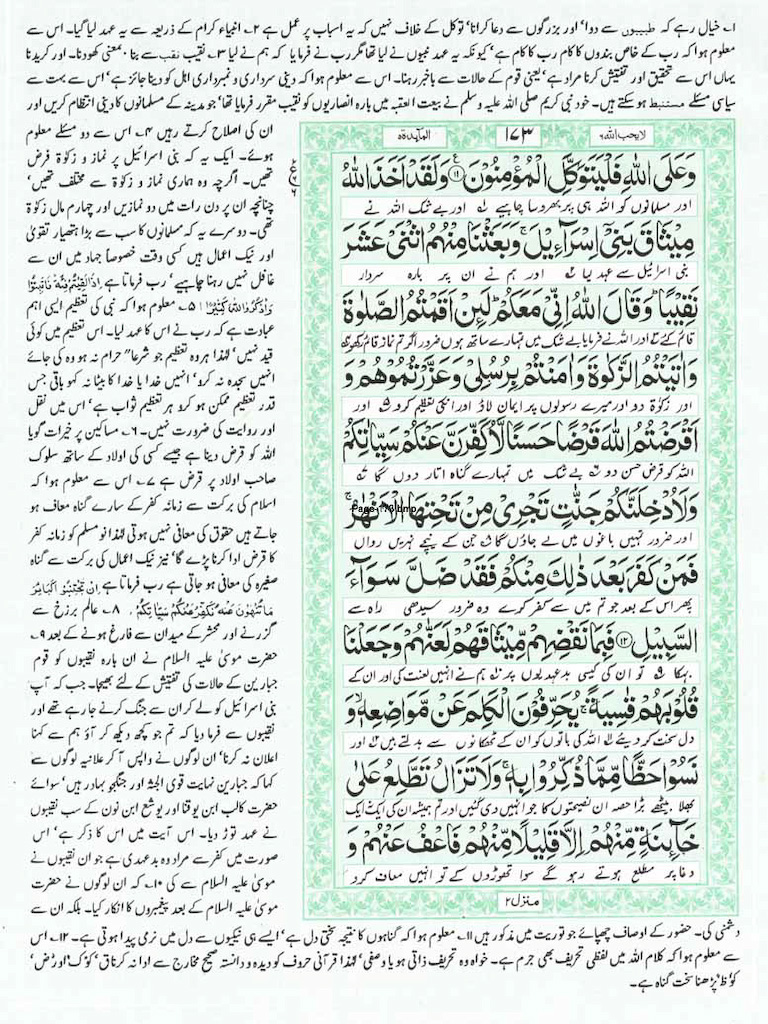 ۱۔ خیال رہے کہ طبیبوں سے دوا' اور بزرگوں سے دعا کرانا' توکل کے خلاف نہیں کہ یہ اسباب پر عمل ہے ۲۔ انبیاء کرام کے ذریعہ سے یہ عہد لیا گیا۔ اس سے
معلوم ہوا کہ رب کے خاص بندوں کا کام رب کا کام ہے' کیونکہ یہ عہد نبیوں نے لیا تھا مگر رب نے فرمایا کہ ہم نے لیا ۳۔ نقیب نقب سے بنا۔ بمعنی کھودنا۔ اور کریدنا
یہاں اس سے تحقیق اور تفتیش کرنا مراد ہے' یعنی قوم کے حالات سے باخبر رہنا۔ اس سے معلوم ہوا کہ دینی سرداری و نمبرداری اہل کو دینا جائز ہے' اس سے بہت سے
سیاسی مسئلے مستنبط ہو سکتے ہیں۔ خود نبی کریم صلی اللہ علیہ و سلم نے بیعت العقبہ میں بارہ انصاریوں کو نقیب مقرر فرمایا تھا' جو مدینہ کے مسلمانوں کا دینی انتظام کریں اور
ان کی اصلاح کرتے رہیں ۴۔ اس سے دو مسئلے معلوم
ہوئے۔ ایک یہ کہ بنی اسرائیل پر نماز و زکوٰۃ فرض
تھیں۔ اگرچہ وہ ہماری نماز و زکوٰۃ سے مختلف تھیں'
چنانچہ ان پر دن رات میں دو نمازیں اور چہارم مال زکوٰۃ
تھی۔ دوسرے یہ کہ مسلمانوں کا سب سے بڑا ہتھیار تقویٰ
اور نیک اعمال ہیں کسی وقت خصوصاً جہاد میں ان سے
غافل نہیں رہنا چاہیے' رب فرماتا ہے اِذَا لَقِيْتُمْ فِئَةً فَاثْبُتُوْا
وَاذْكُرُوا اللّٰهَ كَثِيْرًا ۵۔ معلوم ہوا کہ نبی کی تعظیم ایسی اہم
عبادت ہے کہ رب نے اس کا عہد لیا۔ اس تعظیم میں کوئی
قید نہیں' لہٰذا ہر وہ تعظیم جو شرعاً حرام نہ ہو وہ کی جائے
انہیں سجدہ نہ کرو' انہیں خدا یا خدا کا بیٹا نہ کہو باقی جس
قدر تعظیم ممکن ہو کرو ہر تعظیم ثواب ہے' اس میں نقل
اور روایت کی ضرورت نہیں۔ ۶۔ مساکین پر خیرات گویا
اللہ کو قرض دینا ہے جیسے کسی کی اولاد کے ساتھ سلوک
صاحب اولاد پر قرض ہے ۷۔ اس سے معلوم ہوا کہ
اسلام کی برکت سے زمانہ کفر کے سارے گناہ معاف ہو
جاتے ہیں حقوق کی معافی نہیں ہوتی لہٰذا نو مسلم کو زمانہ کفر
کا قرض ادا کرنا پڑے گا' نیز نیک اعمال کی برکت سے گناہ
صغیرہ کی معافی ہو جاتی ہے رب فرماتا ہے اِنْ تَجْتَنِبُوْا كَبَآئِرَ
مَا تُنْهَوْنَ عَنْهُ نُكَفِّرْ عَنْكُمْ سَيِّاٰتِكُمْ۔ ۸۔ عالم برزخ سے
گزرنے اور محشر کے میدان سے فارغ ہونے کے بعد ۹۔
حضرت موسیٰ علیہ السلام نے ان بارہ نقیبوں کو قوم
جبارین کے حالات کی تفتیش کے لئے بھیجا۔ جب کہ آپ
بنی اسرائیل کو لے کر ان سے جنگ کرنے جا رہے تھے اور
نقیبوں سے فرما دیا کہ تم جو کچھ دیکھ کر آؤ ہم سے کہنا
اعلان نہ کرنا' ان لوگوں نے واپس آ کر علانیہ لوگوں سے
کہا کہ جبارین نہایت قوی الجثہ اور جنگجو بہادر ہیں' سوائے
حضرت کالب ابن یوقنا اور یوشع ابن نون کے سب نقیبوں
نے عہد توڑ دیا۔ اس آیت میں اس کا ذکر ہے' اس
صورت میں کفر سے مراد وہ بدعہدی ہے جو ان نقیبوں نے
موسیٰ علیہ السلام سے کی ۱۰۔ کہ ان لوگوں نے حضرت
موسیٰ علیہ السلام کے بعد پیغمبروں کا انکار کیا۔ بلکہ ان سے
لا یحب اللہ ۶
۱۷۳
المآئدۃ ۵
وَعَلَى اللّٰهِ فَلْيَتَوَكَّلِ الْمُؤْمِنُوْنَ ۝۱۱ وَلَقَدْ اَخَذَ اللّٰهُ
اور مسلمانوں کو اللہ ہی پر بھروسا چاہیے ۱ اور بے شک اللہ نے
مِيْثَاقَ بَنِيْٓ اِسْرَآءِيْلَ ۚ وَبَعَثْنَا مِنْهُمُ اثْنَيْ عَشَرَ
بنی اسرائیل سے عہد لیا ۲ اور ہم نے ان پر بارہ سردار
نَقِيْبًا ؕ وَقَالَ اللّٰهُ اِنِّيْ مَعَكُمْ ؕ لَئِنْ اَقَمْتُمُ الصَّلٰوةَ
قائم کئے ۳ اور اللہ نے فرمایا بے شک میں تمہارے ساتھ ہوں ضرور اگر تم نماز قائم رکھو
وَاٰتَيْتُمُ الزَّكٰوةَ وَاٰمَنْتُمْ بِرُسُلِيْ وَعَزَّرْتُمُوْهُمْ وَ
اور زکوٰۃ دو اور میرے رسولوں پر ایمان لاؤ اور انکی تعظیم کرو ۵ اور
اَقْرَضْتُمُ اللّٰهَ قَرْضًا حَسَنًا لَّاُكَفِّرَنَّ عَنْكُمْ سَيِّاٰتِكُمْ
اللہ کو قرض حسن دو ۶ بے شک میں تمہارے گناہ اتار دوں گا ۷
وَلَاُدْخِلَنَّكُمْ جَنّٰتٍ تَجْرِيْ مِنْ تَحْتِهَا الْاَنْهٰرُ ۚ
Page-173.bmp
اور ضرور تمہیں باغوں میں لے جاؤں گا ۸ جن کے نیچے نہریں رواں
فَمَنْ كَفَرَ بَعْدَ ذٰلِكَ مِنْكُمْ فَقَدْ ضَلَّ سَوَآءَ
پھر اس کے بعد جو تم میں سے کفر کرے وہ ضرور سیدھی راہ سے
السَّبِيْلِ ۝۱۲ فَبِمَا نَقْضِهِمْ مِّيْثَاقَهُمْ لَعَنّٰهُمْ وَجَعَلْنَا
بہکا ۹ تو ان کی کیسی بدعہدیوں پر ۱۰ ہم نے انہیں لعنت کی اور ان کے
قُلُوْبَهُمْ قٰسِيَةً ۚ يُحَرِّفُوْنَ الْكَلِمَ عَنْ مَّوَاضِعِهٖ ۙ وَ
دل سخت کر دیئے ۱۱ اللہ کی باتوں کو ان کے ٹھکانوں سے بدلتے ہیں ۱۲ اور
نَسُوْا حَظًّا مِّمَّا ذُكِّرُوْا بِهٖ ۚ وَلَا تَزَالُ تَطَّلِعُ عَلٰى
بھلا بیٹھے بڑا حصہ ان نصیحتوں کا جو انہیں دی گئیں اور تم ہمیشہ ان کی ایک نہ ایک
خَآئِنَةٍ مِّنْهُمْ اِلَّا قَلِيْلًا مِّنْهُمْ فَاعْفُ عَنْهُمْ وَ
دغا پر مطلع ہوتے رہو گے سوا تھوڑوں کے تو انہیں معاف کرو
منزل ۲
دشمنی کی۔ حضور کے اوصاف چھپائے جو توریت میں مذکور ہیں ۱۱۔ معلوم ہوا کہ گناہوں کا نتیجہ سختی دل ہے' ایسے ہی نیکیوں سے دل میں نرمی پیدا ہوتی ہے۔ ۱۲۔ اس
سے معلوم ہوا کہ کلام اللہ میں لفظی تحریف بھی جرم ہے۔ خواہ وہ تحریف ذاتی ہو یا وصفی' لہٰذا قرآنی حروف کو دیدہ و دانستہ صحیح مخارج سے ادا نہ کرنا ق' کو' ک' اور' ض'
کو' ظ' پڑھنا سخت گناہ ہے۔